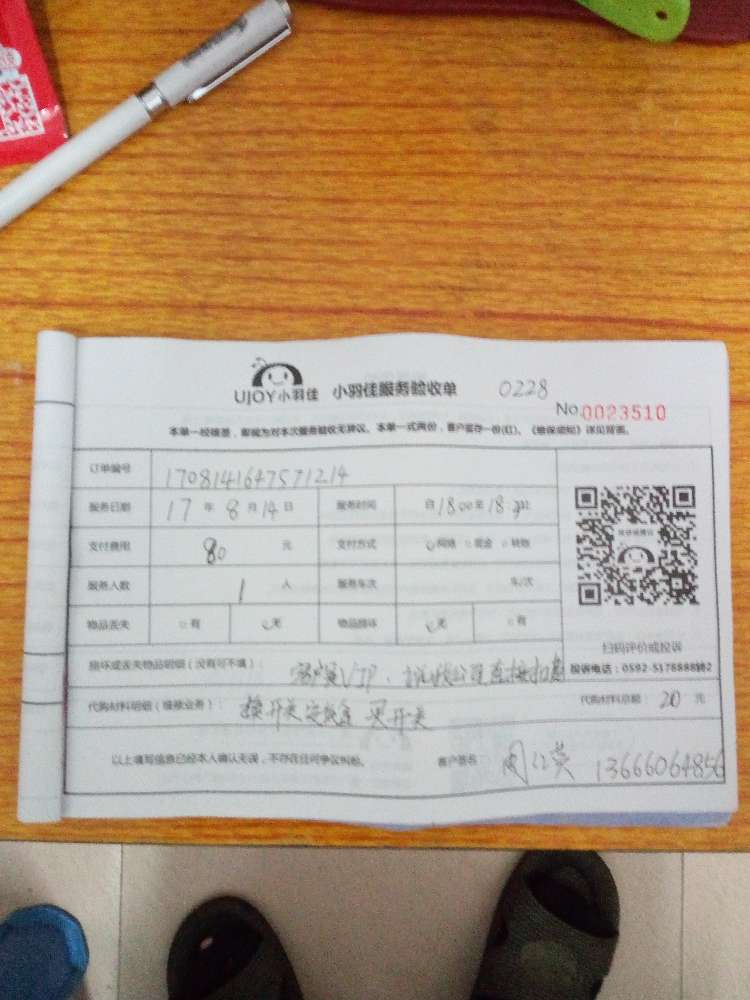 UJOY小羽佳 小羽佳服务验收单 0228
No.0023510
本单一经填写，即视为对本次服务验收无异议。本单一式两份，客户留存一份(红)。《维保须知》详见背面。
订单编号 1708141647571214
服务日期 17 年 8 月 14 日 服务时间 自 18:00 至 18:
支付费用 80 元 支付方式 网络 现金 转账
服务人数 1 人 服务车次 车/次
物品丢失 有 无 物品损坏 有 无
扫码评价或投诉
损坏或丢失物品明细（没有可不填）： 客户是VIP. 公司直接扣
投诉电话：0592-5178888转2
代购材料明细（维修业务）： 换开关 买开关 代购材料总额： 20 元
以上填写信息已经本人确认无误，不存在任何争议纠纷。 客户签名： 周红英 13666064856